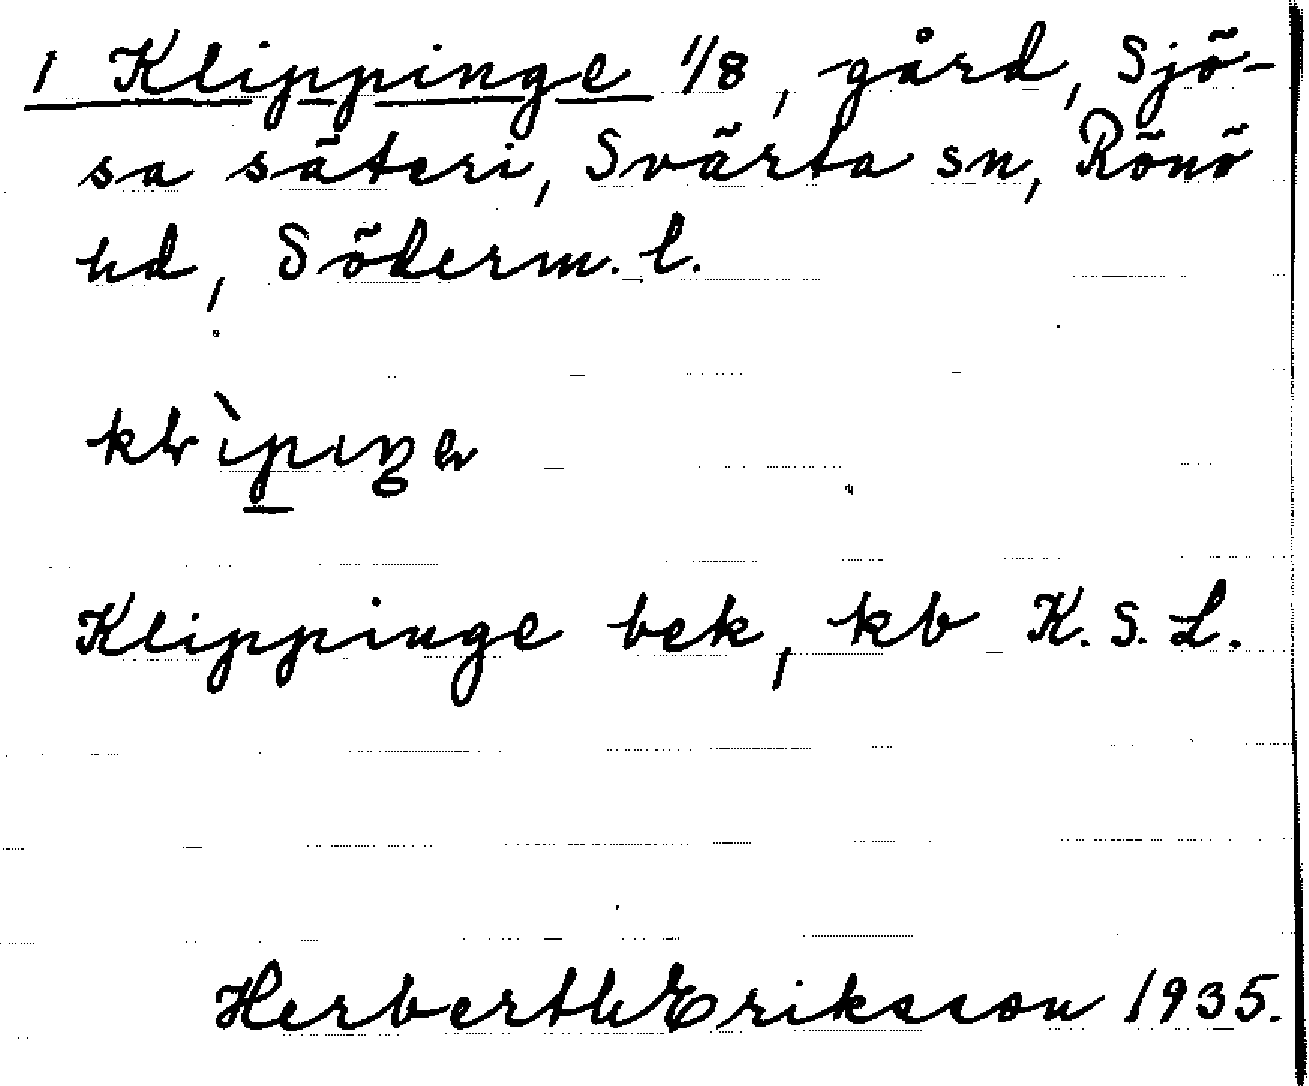 1 Klippinge 1/8, gård, Sjö-
sa säteri, Svärta sn, Rönö
hd, Söderm. l.
Klippinge bek, kb K. S. L.
Herbert Eriksson 1935.